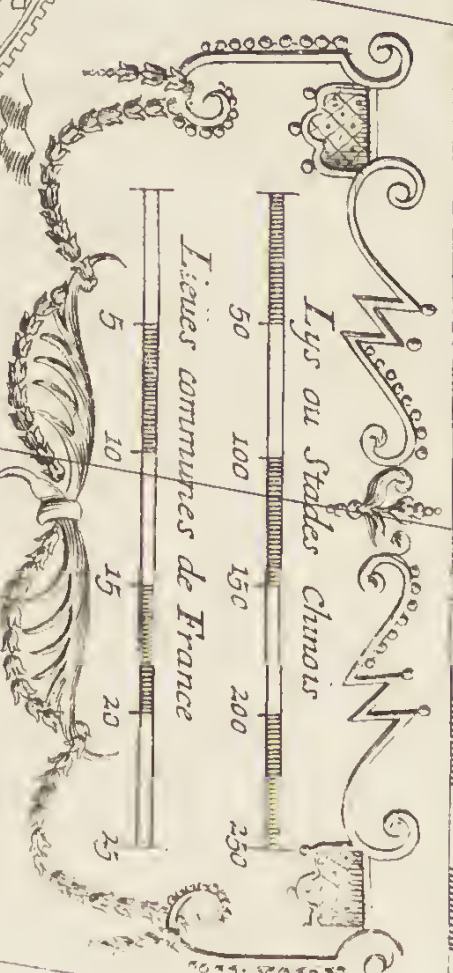 Lys ou Stades Chinois
50 100 150 200 250
Lieües communes de France
5 10 15 20 25